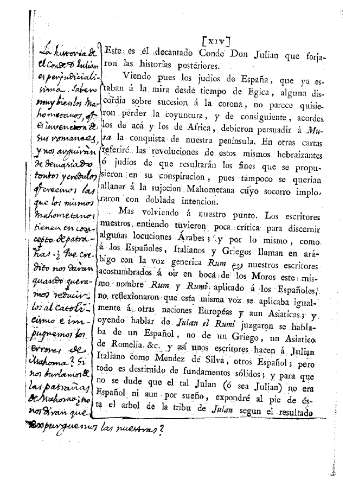 [XIV]
Este es él decantado Conde Don Julian que forja-
ron las historias posteriores.
Viendo pues los judios de España, que ya es-
taban á la mira desde tiempo de Egica, alguna dis-
cordia sobre sucesión á la corona, no parece quisie-
ron pérder la coyuntura, y de consiguiente, acordes
los de acá y los de Africa, debieron persuadir á Mu-
sa la conquista de nuestra península. En otras cartas
referiré las revoluciones de estos mismos hebraizantes
ó judios de que resultarán los fines que se propu-
sieron en su conspiracion, pues tampoco se querian
allanar á la sujecion Mahometana cuyo socorro implo-
raron con doblada intencion.
Mas volviendo á nuestro punto. Los escritores
nuestros entiendo tuvieron poca critica para discernir
algunas locuciones Árabes; y por lo mismo, como
á los Españoles, Italianos y Griegos llaman en ará-
bigo con la voz generica Rum nuestros escritores
acostumbrados á oir en boca de los Moros este mis-
mo nombre Rum y Rumi aplicado á los Españoles,
no reflexionaron que esta misma voz se aplicaba igual-
mente á otras naciones Européas y aun Asiaticas; y
oyendo hablar de Julan el Rumi juzgaron se habla-
ba de un Español, no de un Griego, un Asiatico
de Romelia &c. y asi unos escritores hacen á Julian
Italiano como Mendez de Silva, otros Español; pero
todo es destimido de fundamentos sólidos; y para que
no se dude que el tal Julan (ó sea Julian) no era
Español ni aun por sueño, expondré al pie de és-
ta el arbol de la tribu de Julan segun el resultado
La historia de
el Conde D. Julian
es perjudiciali-
sima. Saben
muy bien los Ma-
hometanos, q.e
es invencion de
sus romances,
y nos arguirán
de demasiado
tontos y crédulos
ofrecemos las
que los mismos
Mahometanos
tienen en con-
cepto de patra-
ñas. ¿Que cre-
dito nos darán
quando quera-
mos reducir-
los al Catoli-
cismo e im-
pugnemos los
errores de
Mahoma? Si
nos burlamos de
las patrañas
de Mahoma, no
nos diran que
expurguemos las nuestras?